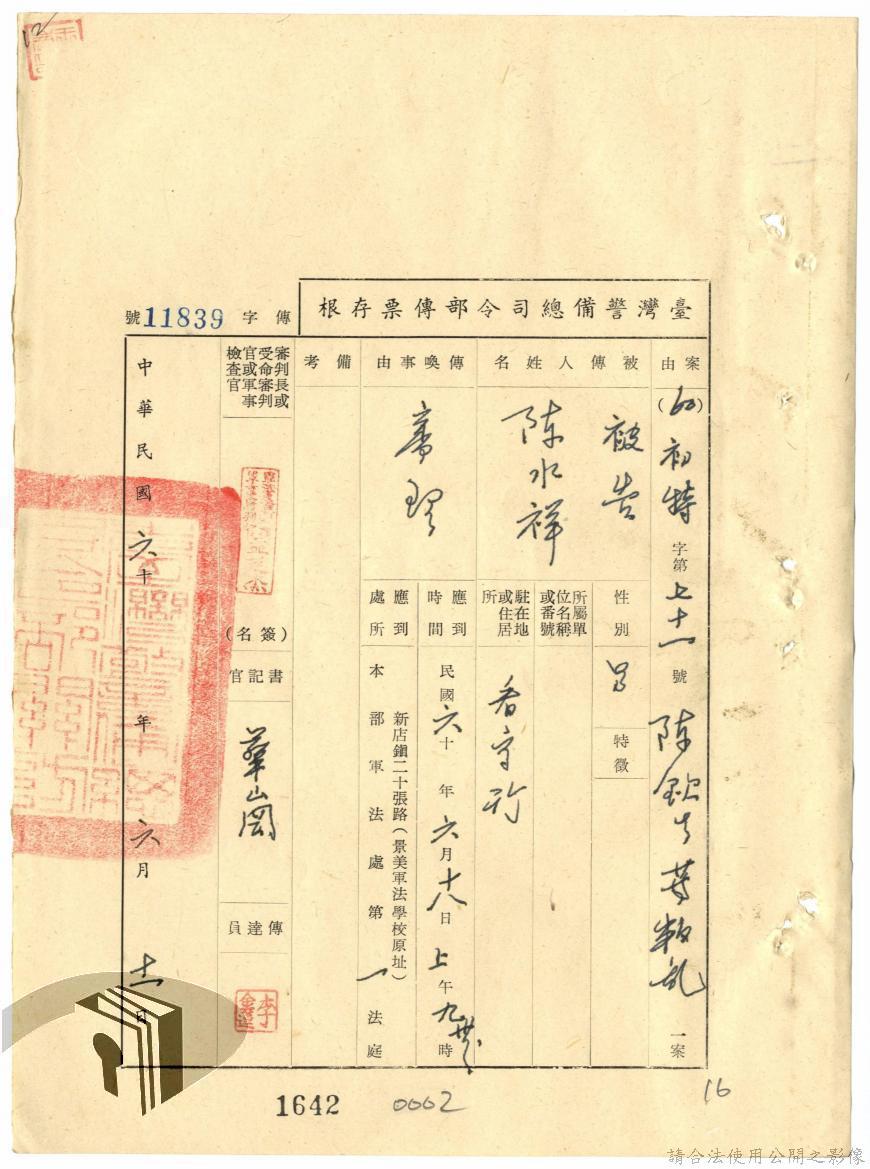 12
臺灣警備總司令部傳票存根
傳字 11839 號
案由
(60)初特字第七十一號 陳欽生等叛亂一案
被傳人姓名
被告
陳水祥
性別 男
特徵
所屬單位名稱或番號
駐在地或住居所
看守所
傳喚事由
審理
應到時間
民國六十年六月十八日上午九時
應到處所
新店鎮二十張路(景美軍法學校原址)
本部軍法處第一法庭
備考
審判長或受命審判官或軍事檢查官
(簽名)
書記官
華山崗
傳達員
李金
中華民國六十年六月十一日
1642
0002
16
請合法使用公開之影像